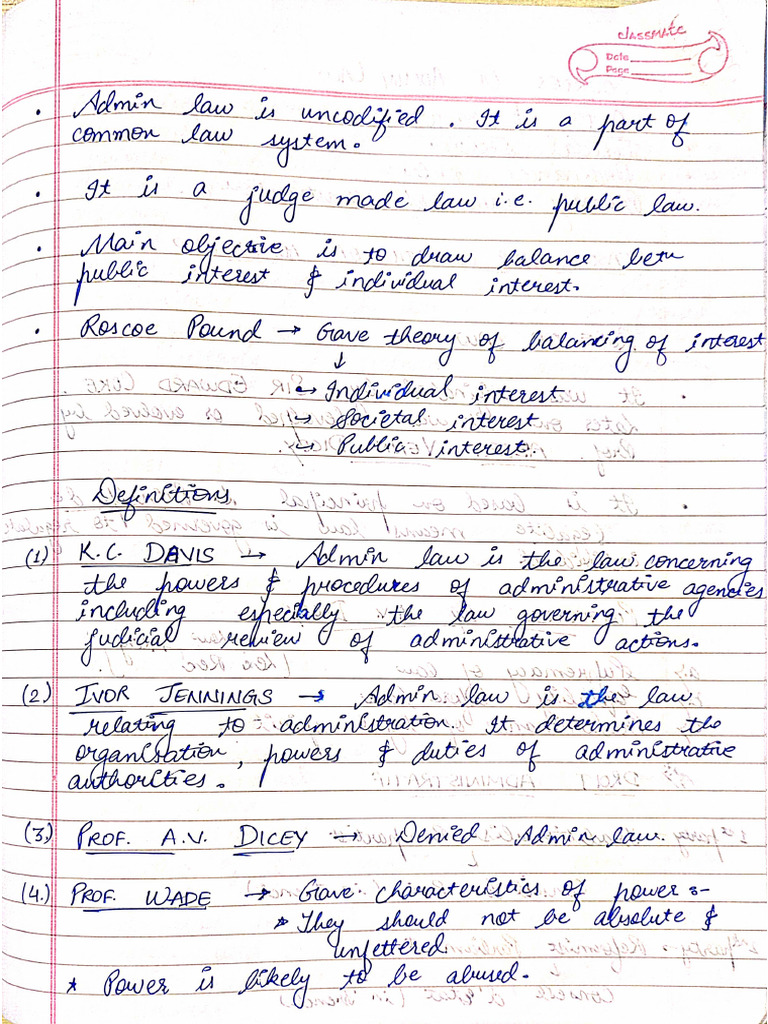 classmate
Date
Page
• Admin law is uncodified. It is a part of
common law system.
• It is a judge made law i.e. public law.
• Main objective is to draw balance betn
public interest & individual interest.
• Roscoe Pound → Gave theory of balancing of interest
↓
→ Individual interest
→ Societal interest
→ Public interest.
Definitions
(1) K.C. DAVIS → Admin law is the law concerning
the powers & procedures of administrative agencies
including especially the law governing the
judicial review of administrative actions.
(2) IVOR JENNINGS → Admin law is the law
relating to administration. It determines the
organisation, powers & duties of administrative
authorities.
(3) PROF. A.V. DICEY → Denied Admin law.
(4.) PROF. WADE → Gave characteristics of power :-
* They should not be absolute &
unfettered
* Power is likely to be abused.